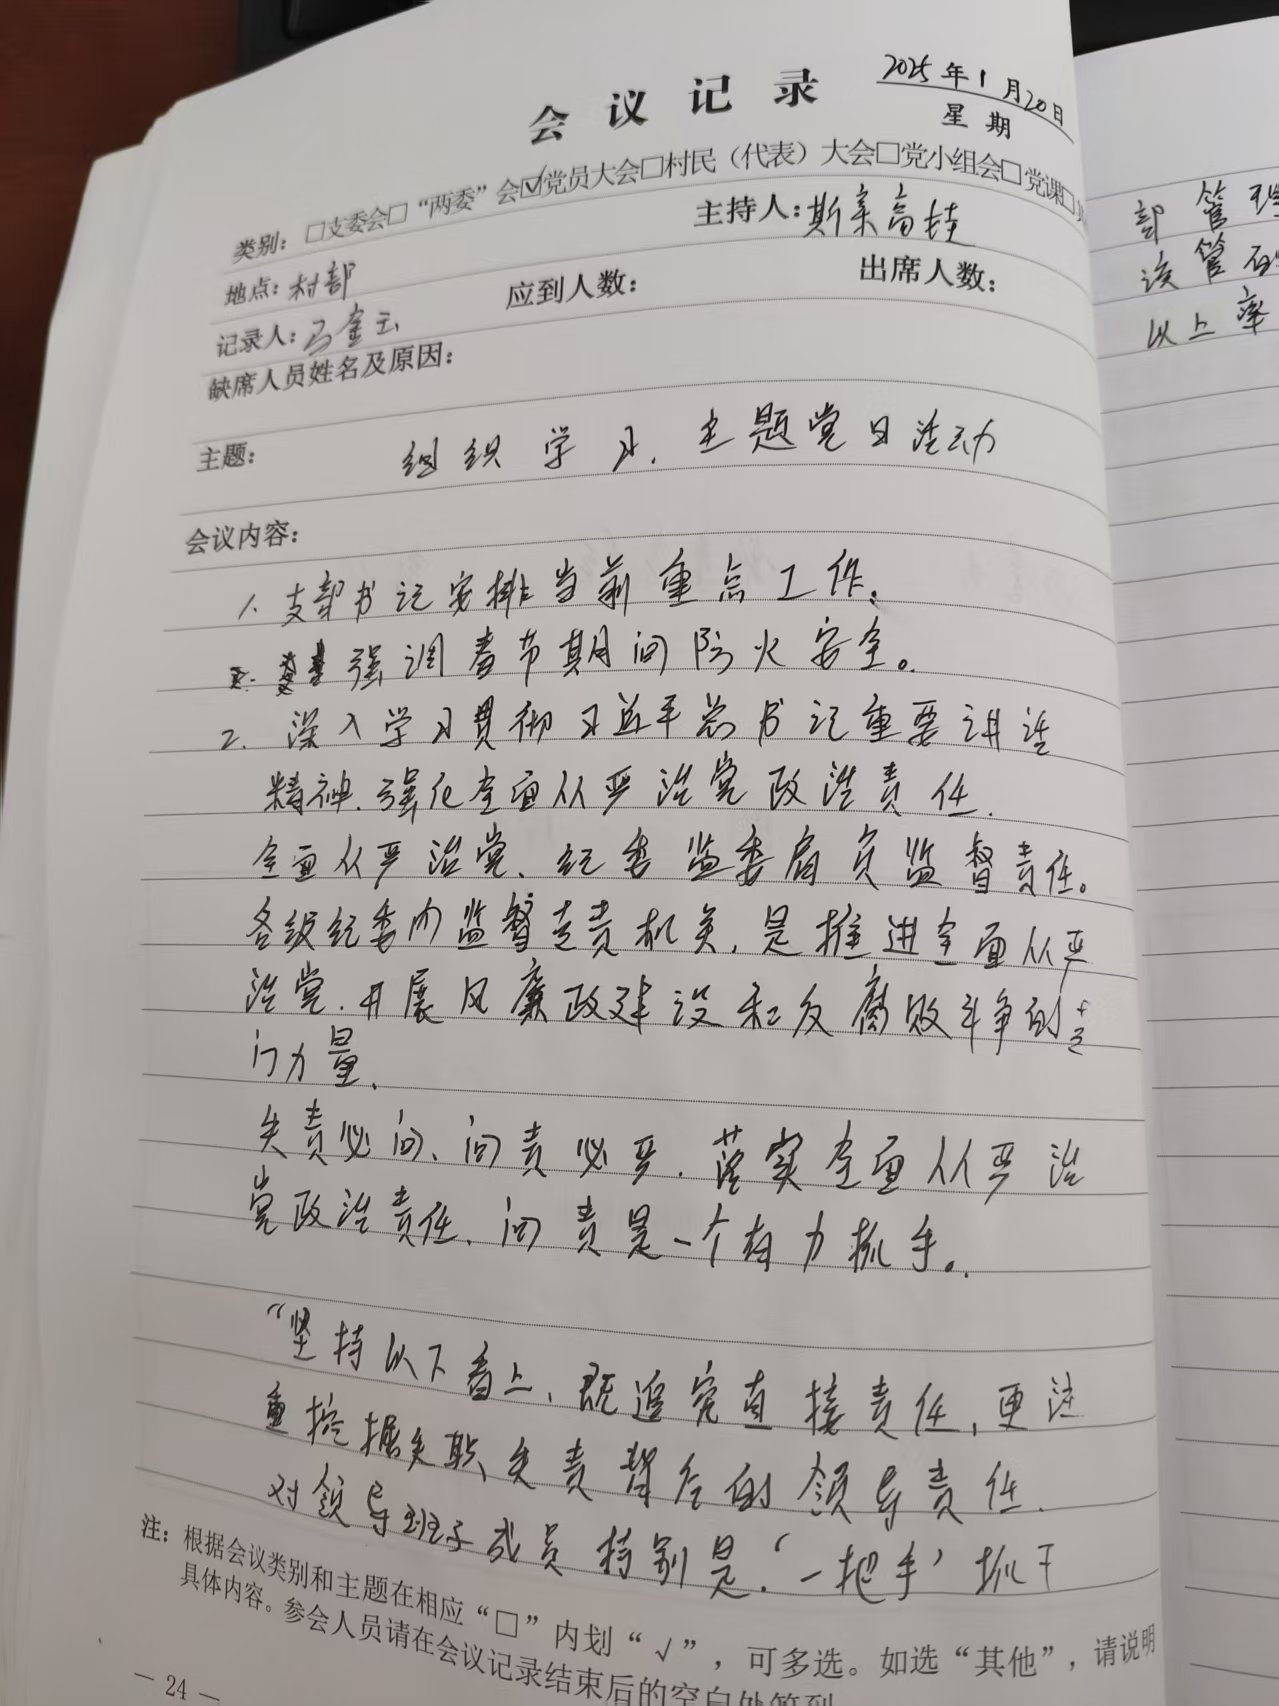 会议记录
2025年1月20日
星期
类别：□支委会□“两委”会☑党员大会□村民（代表）大会□党小组会□党课□
地点：村部
主持人：斯亲高娃
记录人：马金云
应到人数：
出席人数：
缺席人员姓名及原因：
主题：
组织学习、主题党日活动
会议内容：
1. 支部书记安排当前重点工作。
强调春节期间防火安全。
2. 深入学习贯彻习近平总书记重要讲话
精神、强化全面从严治党政治责任.
全面从严治党、纪委监委肩负监督责任。
各级纪委内监督专责机关，是推进全面从严
治党、开展风廉政建设和反腐败斗争的专
门力量、
失责必问、问责必严. 落实全面从严治
党政治责任、问责是一个有力抓手。
“坚持以下看上、既追究直接责任，更注
重挖掘失职、失责背后的领导责任.
对领导班子成员特别是‘一把手’抓下
注：根据会议类别和主题在相应“□”内划“√”，可多选。如选“其他”，请说明
具体内容。参会人员请在会议记录结束后的空白处签到
— 24 —
部管理
该管的
以上率